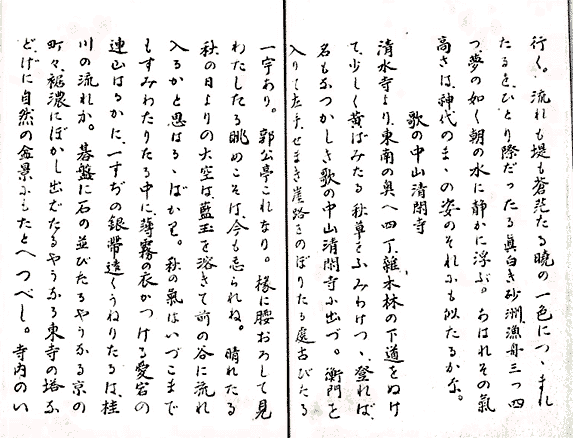 行く。流れも堤も蒼茫たる曉の一色につゝまれ
たるを、ひとり際だったる眞白き砂洲、漁舟三つ四
つ、夢の如く朝の水に静かに浮ぶ。あはれその氣
高さは、神代のまゝの姿のそれにも似たるかな。
歌の中山清閑寺
清水寺より東南の奥へ四丁、雜木林の下道をぬけ
て、少しく黄ばみたる秋草をふみわけつゝ登れば、
名もなつかしき歌の中山清閑寺に出づ。衡門を
入りて左手、せまき崖路をのぼりたる處古びたる
一宇あり。郭公亭これなり。椽に腰おろして見
わたしたる眺めこそは、今も忘られね。晴れたる
秋の日よりの大空は、藍玉を溶きて前の谷に流れ
入るかと思はるゝばかり。秋の氣はいづこまで
もすみわたりたる中に、薄霧の衣かつける愛宕の
連山はるかに一すぢの銀帶遠くうねりたるは、桂
川の流れか。碁盤に石の並びたるやうなる京の
町々、裾濃にぼかし出だたるやうなる東寺の塔な
ど、げに自然の盆景にもたとへつべし。寺内のい